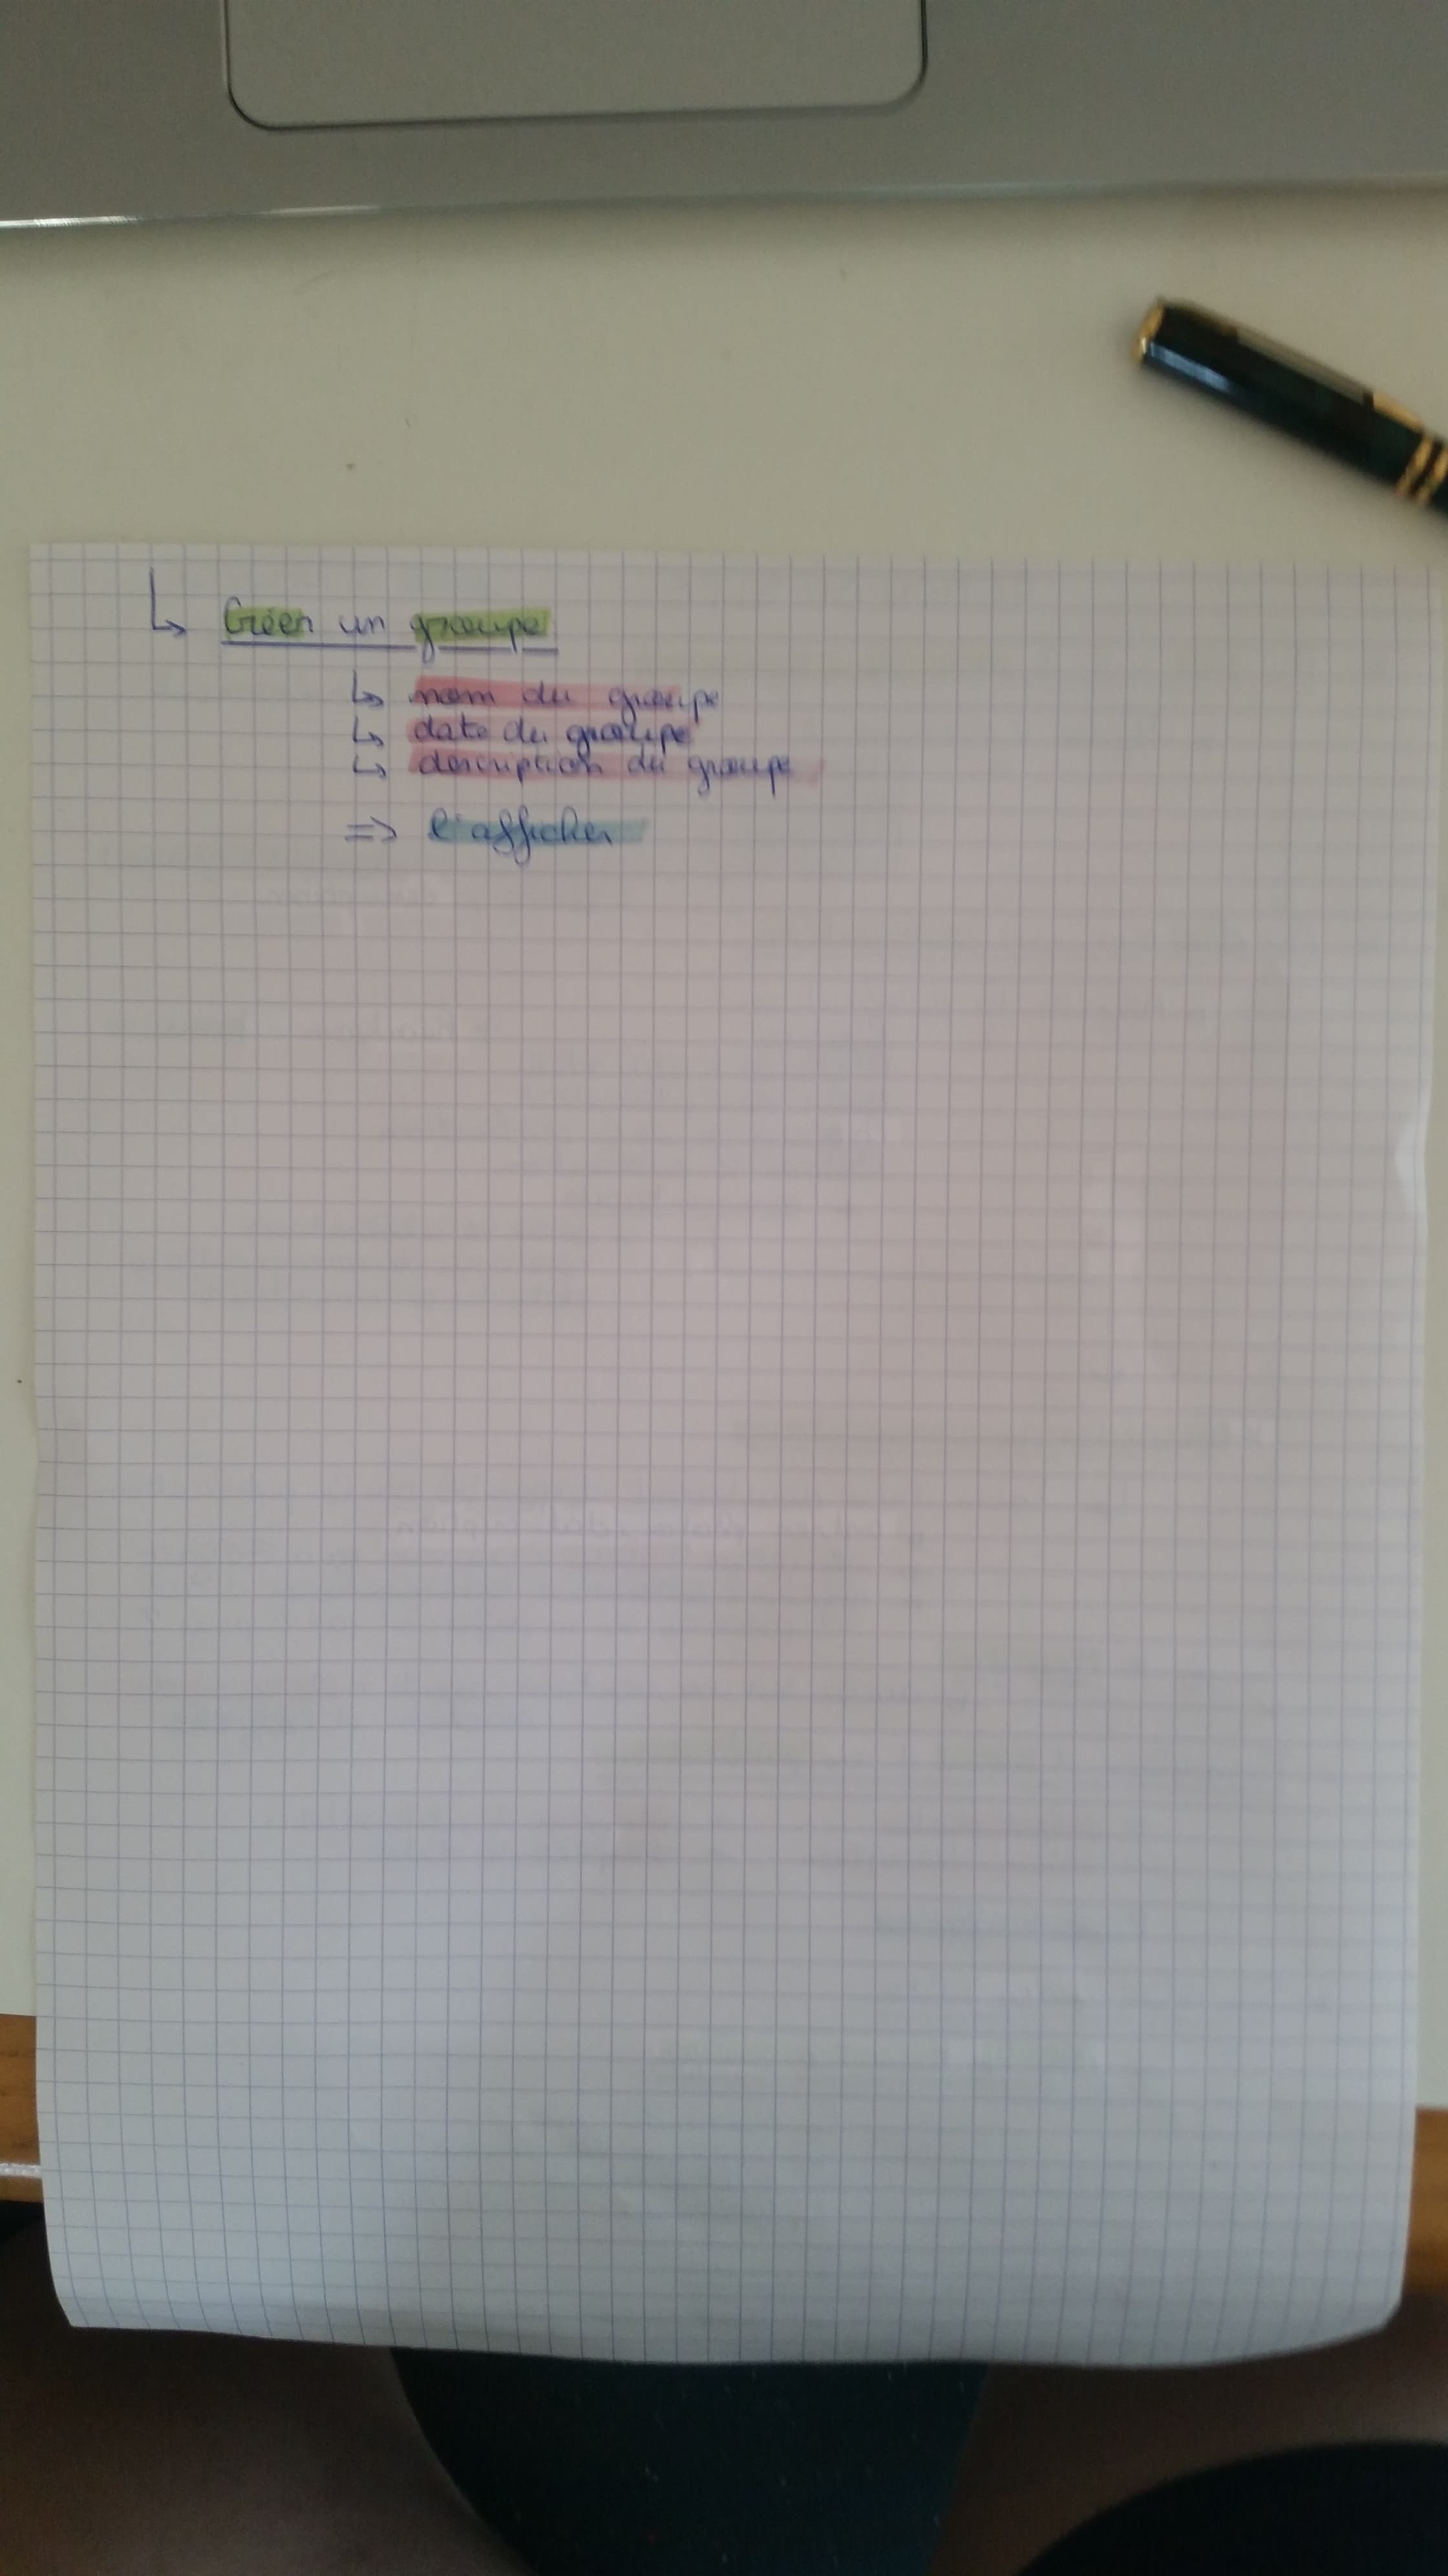 ↳ Créer un groupe
↳ nom du groupe
↳ date du groupe
↳ description du groupe
=> l'afficher